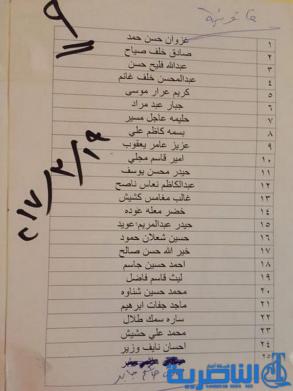 قانونية
١ غزوان حسن حمد
٢ صادق خلف صياح
٣ عبدالله فليح حسن
٤ عبدالمحسن خلف غانم
٥ كريم عرار موسى
٦ جبار عبد مراد
٧ حليمه عاجل مسير
٨ بسمه كاظم علي
٩ عزيز عامر يعقوب
١٠ امير قاسم مجلي
١١ حيدر محسن يوسف
١٢ عبدالكاظم نعاس ناصح
١٣ غالب مغامس كشيش
١٤ خضر معله عوده
١٥ حيدر عبدالمريم عويد
١٦ حسين شعلان حمود
١٧ خير الله حسن صالح
١٨ احمد حسين جاسم
١٩ ليث قاسم فاضل
٢٠ محمد حسين شناوه
٢١ ماجد جفات ابرهيم
٢٢ ساره سمك طلال
٢٣ محمد علي حشيش
٢٤ احسان نايف وزير
٢٥
الناصرية